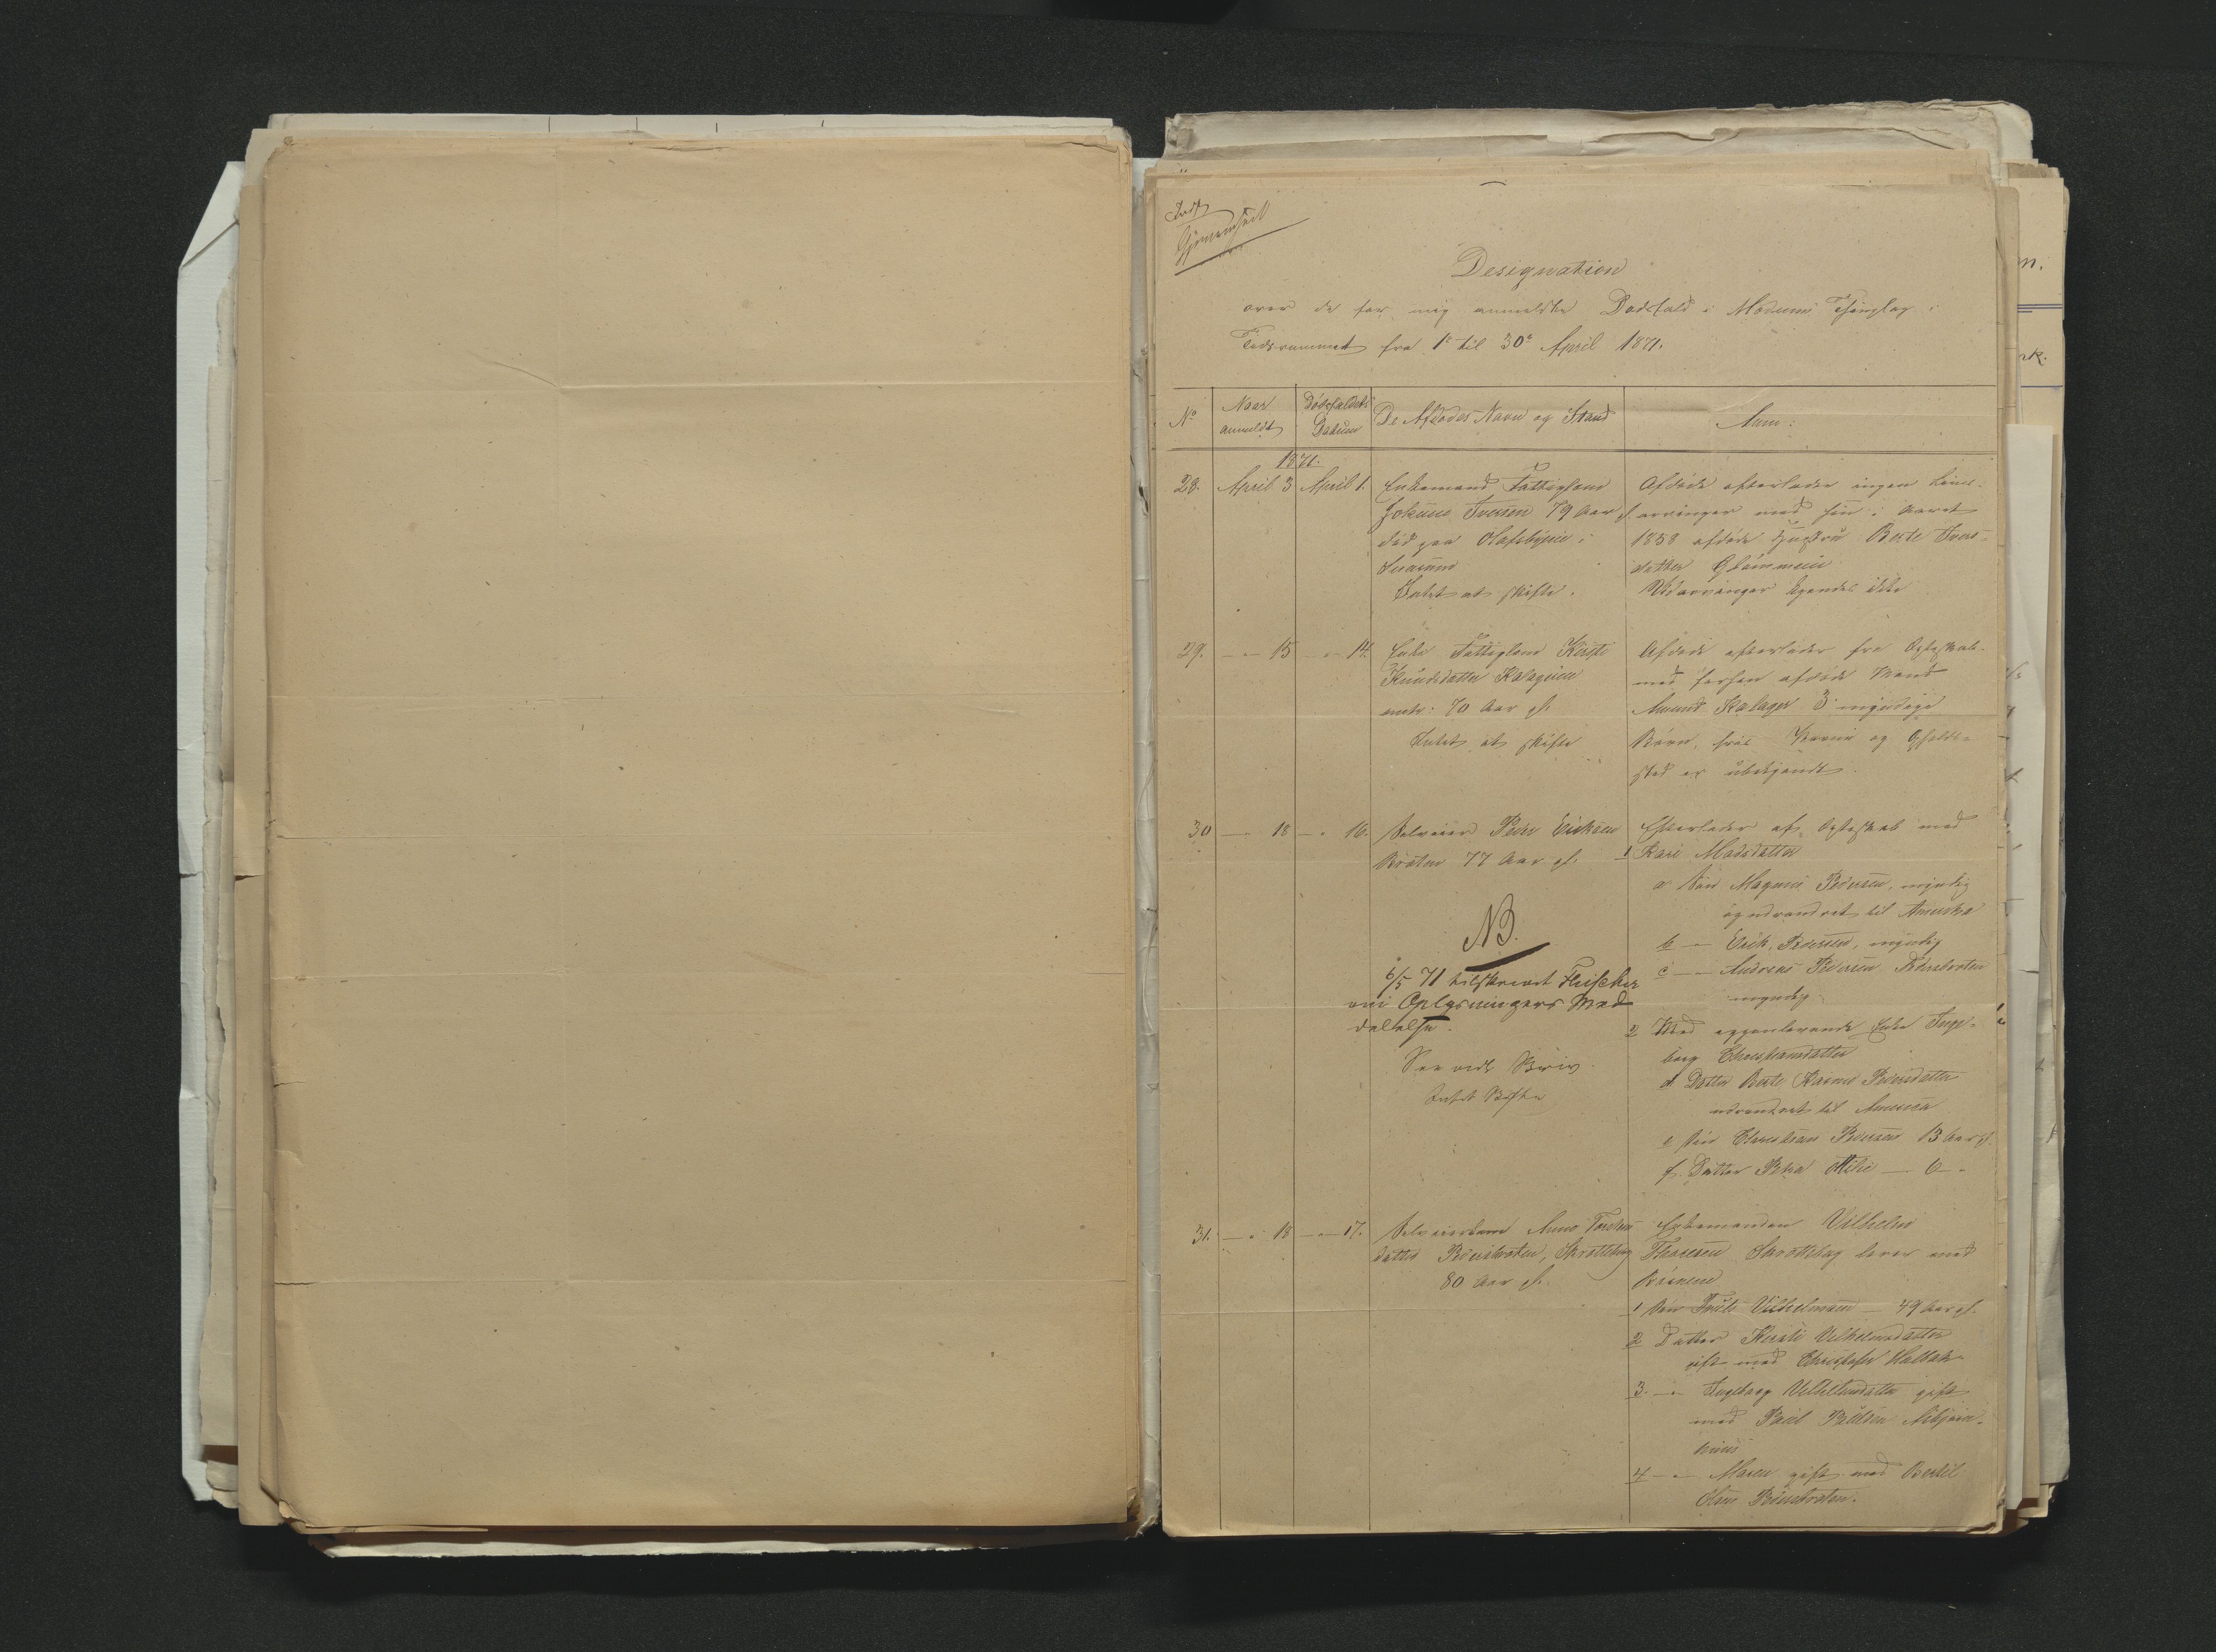 Indf
Gjennemseet
Designation
over de for mig anmeldte Dødsfald i Modums Thinglag i
Tidsrummet fra 1e til 30e April 1871.
No
Naar
anmeldt
Dødsfaldets
Datum
De Afdødes Navn og Stand
Anm:
1871.
28. April 3 April 1. Enkemand Fattiglem
Iversen 79 Aar gl.
død paa Olafsbyeie i
Snarum
Intet at skifte.
Afdøde efterlader ingen Livs-
arvinger med sin i Aaret
1858 afdøde Hustru Berte Ivers-
datter
Udarvinger kjendes ikke
29. — " 15 — " 14. Enke Fattiglem Kirsti
Knudsdatter Kalageie
omtr: 70 Aar gl.
Intet at skifte
Afdøde efterlader fra Ægteskab
med forhen afdøde Mand
Amund Kalager 3 myndige
Børn, hvis Navne og Opholds-
sted er ubekjendt.
30 — " 18 — " 16. Selveier Peder Eriksen
Braaten 77 Aar gl.
NB.
6/5 71 tilskrevet Fleischer
om Oplysningers Med
delelse.
See vedl Brev
Intet Skifte
Efterlader af Ægteskab med
1 Kari Madsdatter
a Søn Magnus Pedersen, myndig
og udvandret til Amerika
b — " Erik Pedersen, myndig
c — " Andreas Pedersen
myndig
2 Med igjenlevende Enke Inge-
borg Christiansdatter
d Datter Berte Karine Pedersdatter
udvandret til America
e Søn Christian Pedersen 13 Aar gl.
f. Datter Petra Otilie — 6 — "
31. — " 18 — " 17. Selveierkone Anne Torsten
datter Skrøttebeg
80 Aar gl.
Enkemanden Vilhelm
Thoresen lever med
Børnene
1 Søn Vilhelmsen — 49 Aar gl.
2 Datter Kirsti Vilhelmsdatter
gift med Christofer
3. — " Ingeborg Vilhelmsdatter gift
med Paul Paulsen
4 — " Maren gift med Bertil
Olsen